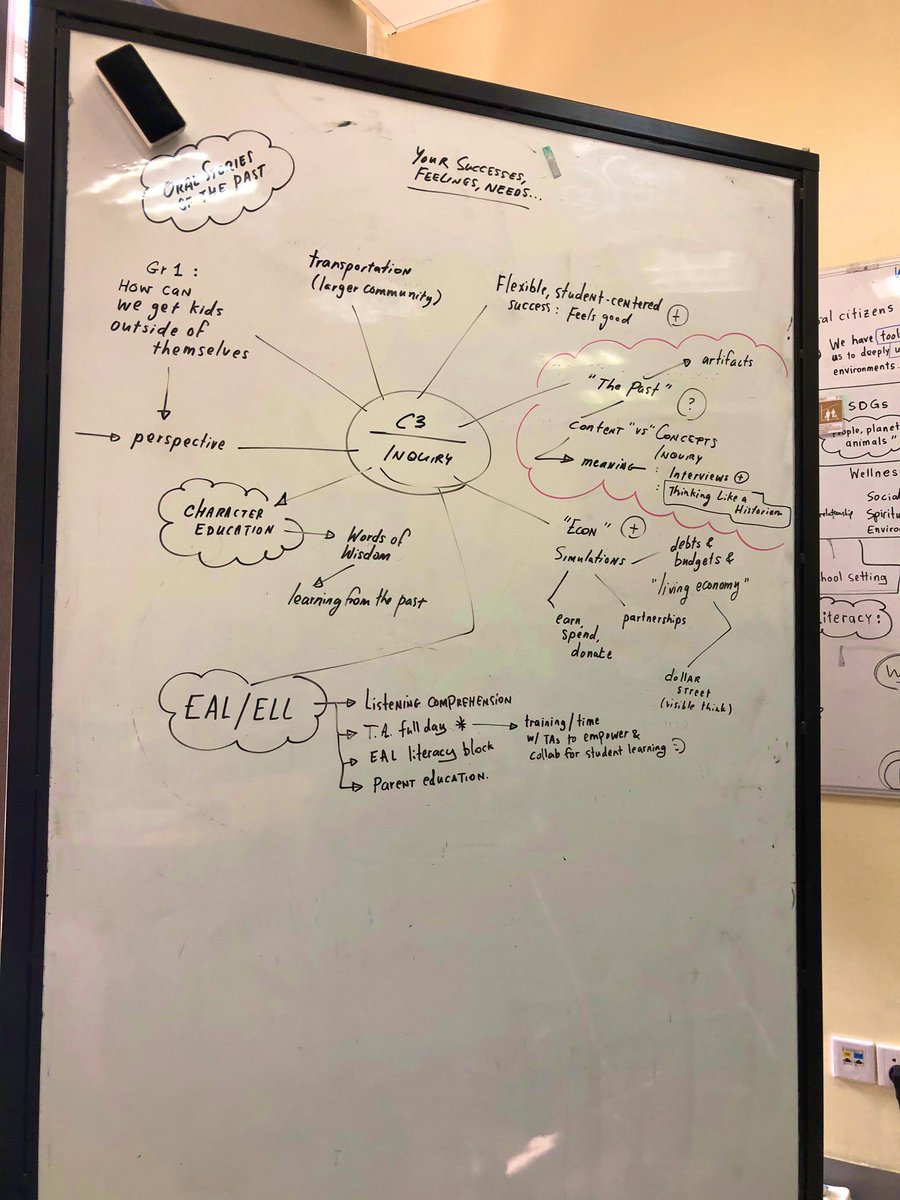 ORAL STORIES
OF THE PAST
YOUR SUCCESSES,
FEELINGS, NEEDS...
Gr 1:
HOW CAN
WE get kids
outside of
themselves
perspective
transportation
(larger community)
Flexible, student-centered
success: Feels good
+
C3
INQUIRY
"The Past"
artifacts
?
CONTENT "VS" CONCEPTS
INQUIRY
meaning
: Interviews +
: Thinking Like a
Historian
CHARACTER
EDUCATION
Words of
Wisdom
learning from the past
"ECON" +
Simulations
debts &
budgets &
"living economy"
earn,
spend,
donate
partnerships
dollar
street
(visible think)
EAL/ELL
Listening comprehension
T.A. full day *
training/time
w/ TAs to empower &
collab for student learning :)
EAL literacy block
Parent education.
al citizens
We have tool
us to deeply u
environments.
SDGs
people, planet
animals"
Wellness
Social
relationship
Spiritu
Enviro
hool setting
iteracy: